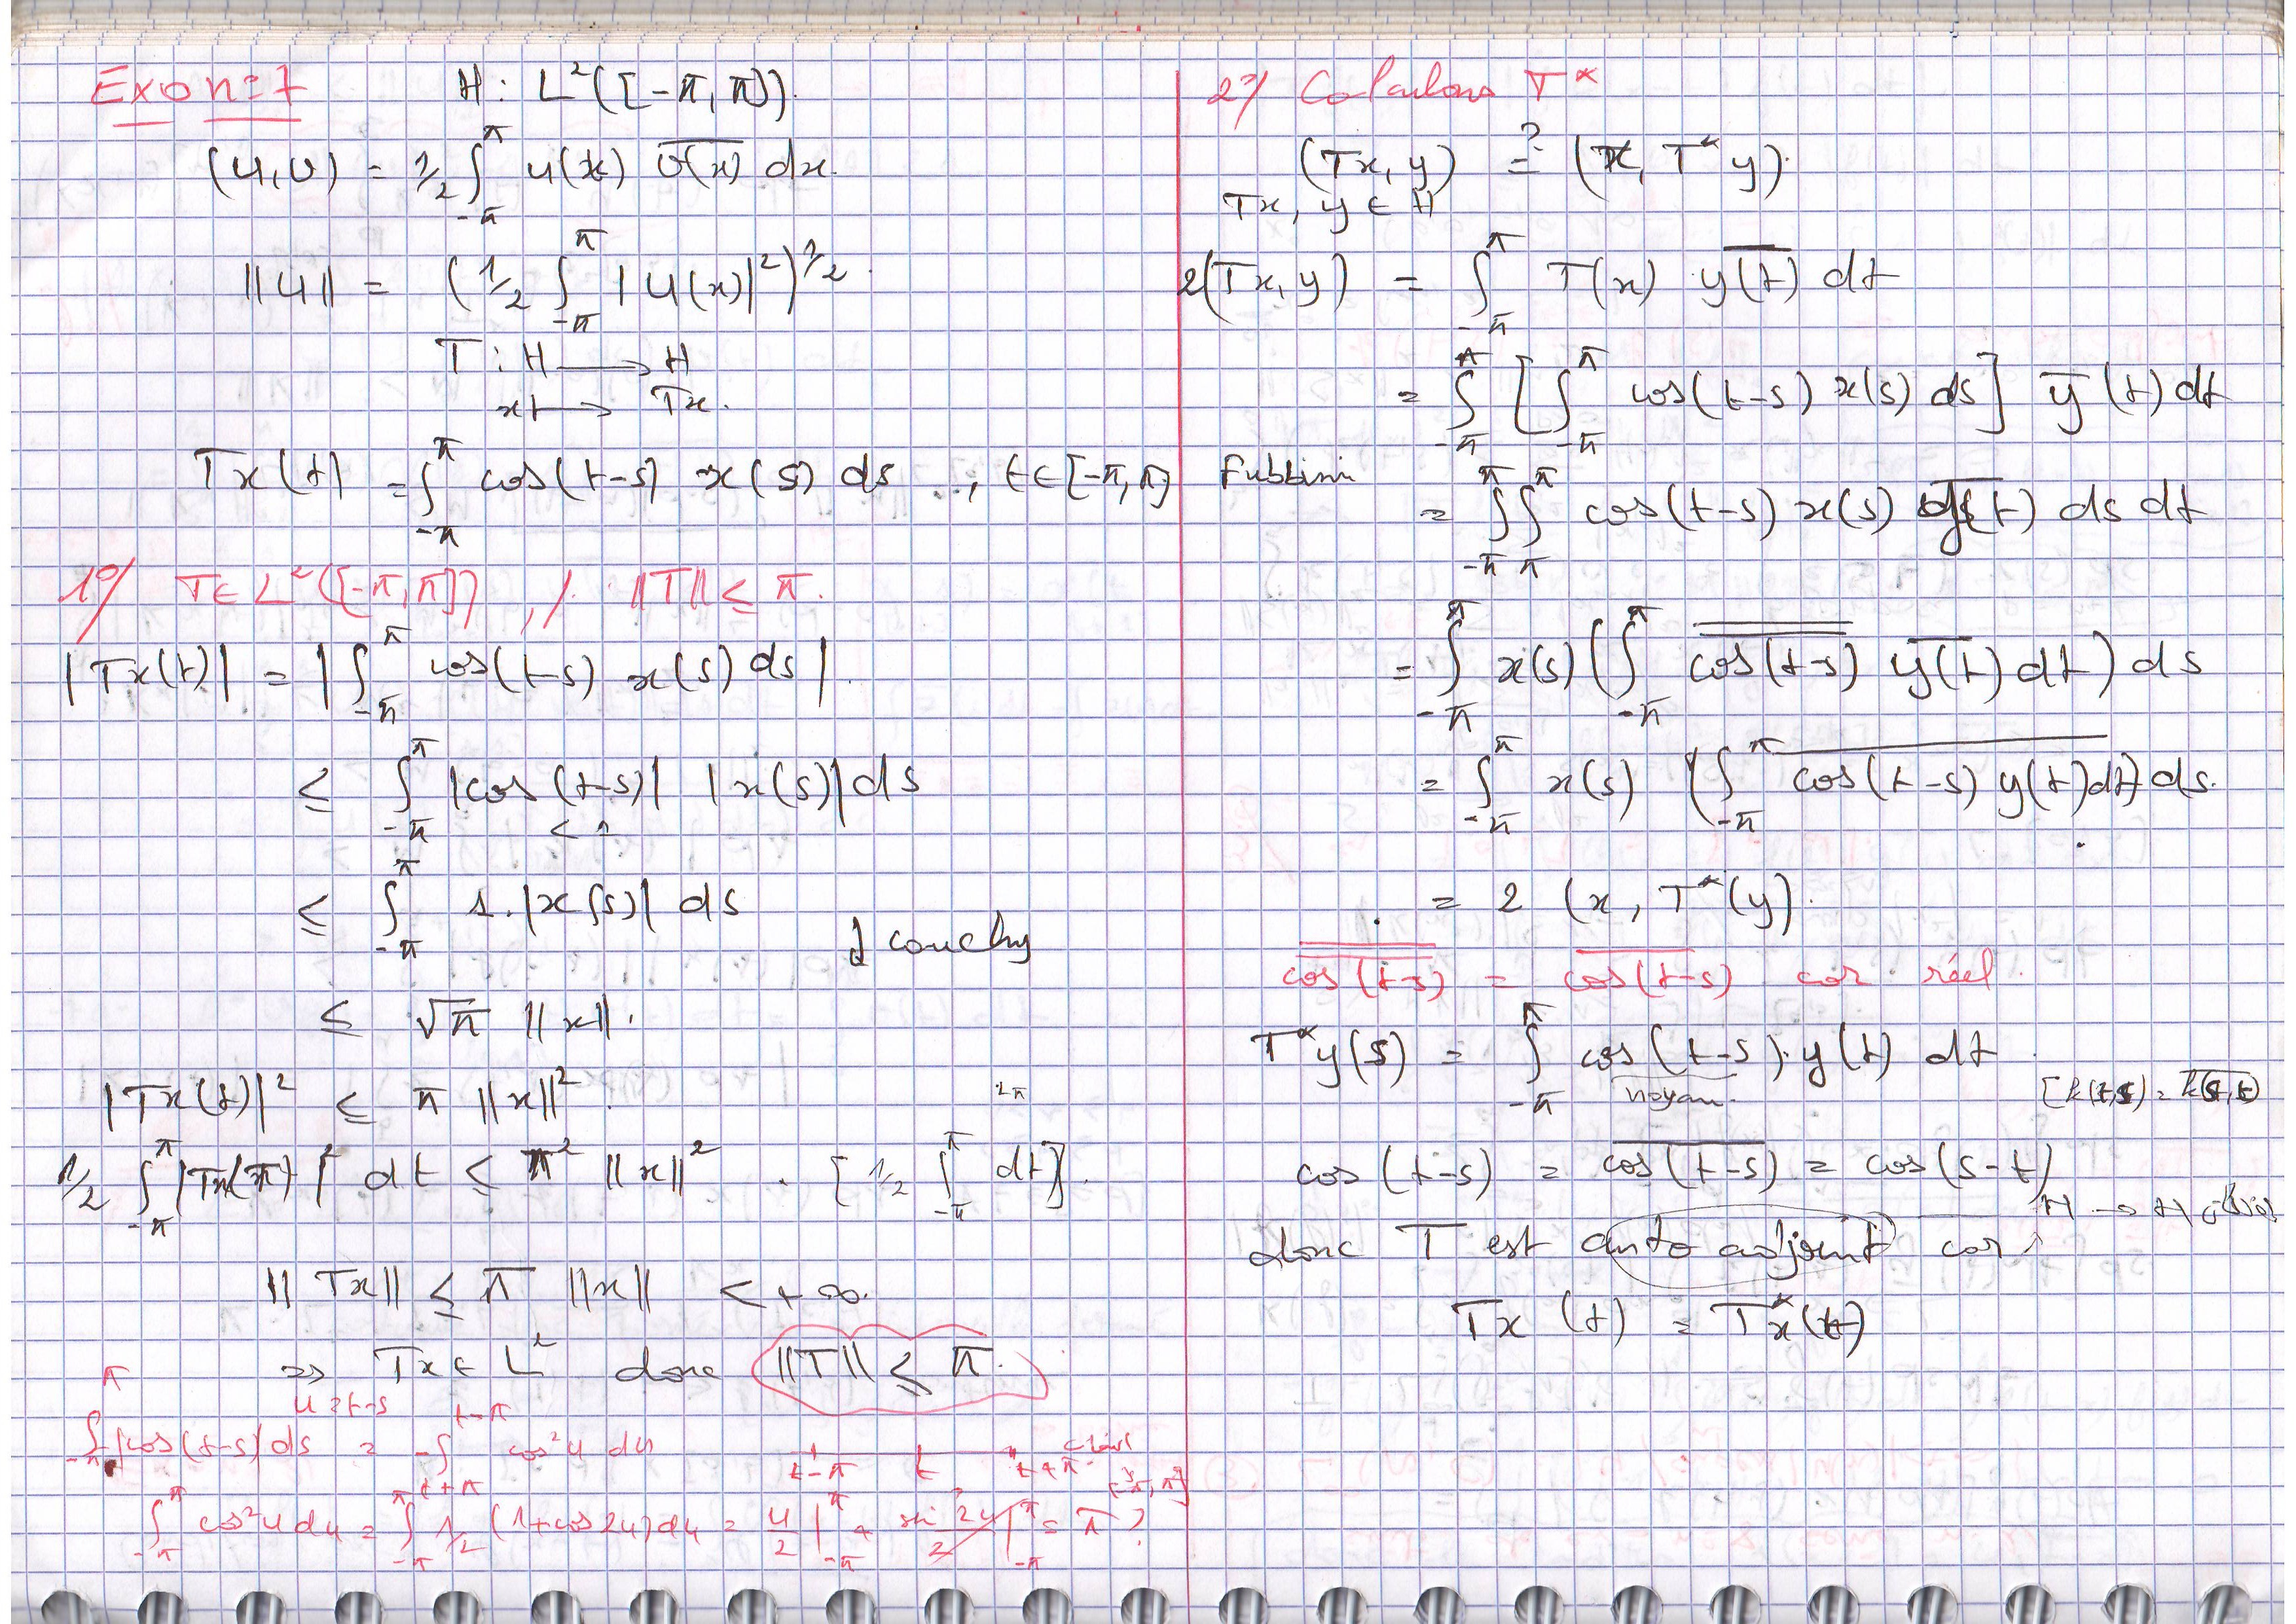 Exo n=7 H: L²([-π,π]).
(u,v) = 1/2 ∫_{-π}^{π} u(x) \overline{v(x)} dx.
||u|| = (1/2 ∫_{-π}^{π} |u(x)|²)^{1/2}.
T : H ⟶ H
x ⟼ Tx.
Tx(t) = ∫_{-π}^{π} cos(t-s) x(s) ds , t∈[-π,π]
1°/ T∈ L²([-π,π]) , /. ||T|| ≤ π.
|Tx(t)| = |∫_{-π}^{π} cos(t-s) x(s) ds|.
≤ ∫_{-π}^{π} |cos(t-s)| |x(s)| ds
< 1
≤ ∫_{-π}^{π} 1.|x(s)| ds
couchy
≤ √π ||x||.
|Tx(t)|² ≤ π ||x||².
2π
1/2 ∫_{-π}^{π} |Tx(π)|² dt ≤ π² ||x||² . [1/2 ∫_{-π}^{π} dt].
||Tx|| ≤ π ||x|| < +∞.
=> Tx ∈ L² donc ||T|| ≤ π.
u=t-s
∫_{-π}^{π} |cos(t-s)| ds = -∫_{t+π}^{t-π} cos²u du
t-π t t+π
∫_{-π}^{π} cos²u du = ∫_{-π}^{π} 1/2 (1+cos2u) du = u/2 |_{-π}^{π} + sin 2u/2 |_{-π}^{π} = π ?
2°/ Calculons T*
(Tx,y) =? (x, T*y).
Tx, y ∈ H
2(Tx,y) = ∫_{-π}^{π} T(x) \overline{y(t)} dt
= ∫_{-π}^{π} [∫_{-π}^{π} cos(t-s) x(s) ds] \overline{y}(t) dt
Fubbini
= ∫_{-π}^{π} ∫_{π}^{π} cos(t-s) x(s) \overline{y(t)} ds dt
= ∫_{-π}^{π} x(s) (∫_{-π}^{π} \overline{\overline{cos(t-s)}} \overline{y(t)} dt) ds
= ∫_{-π}^{π} x(s) (∫_{-π}^{π} \overline{cos(t-s) y(t) dt}) ds.
= 2 (x, T*(y).
\overline{\overline{cos(t-s)}} = \overline{cos(t-s)} car réel.
T*y(s) = ∫_{-π}^{π} cos(t-s).y(t) dt.
noyau.
[k(t,s) = \overline{k(s,t)}
cos(t-s) = \overline{cos(t-s)} = cos(s-t)
donc T est auto adjoint car
Tx(t) = T*x(t)